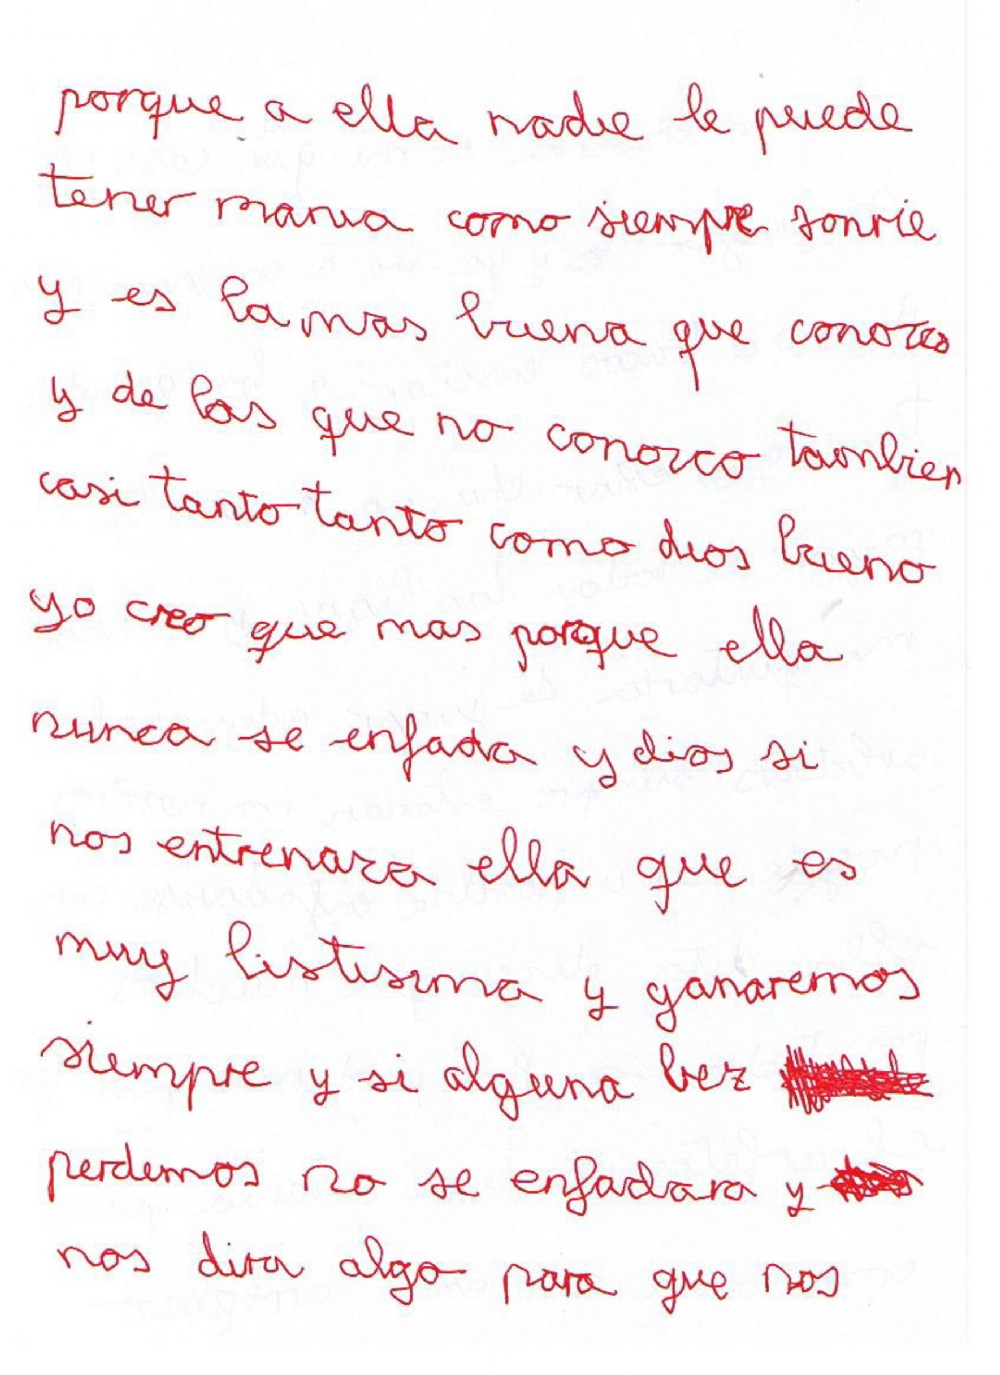 porque a ella nadie le puede
tener mania como siempre sonrie
y es la mas buena que conozco
y de las que no conozco tambien
casi tanto tanto como dios bueno
yo creo que mas porque ella
nunca se enfada y dios si
nos entrenara ella que es
muy listisima y ganaremos
siempre y si alguna bez
perdemos no se enfadara y
nos dira algo para que nos